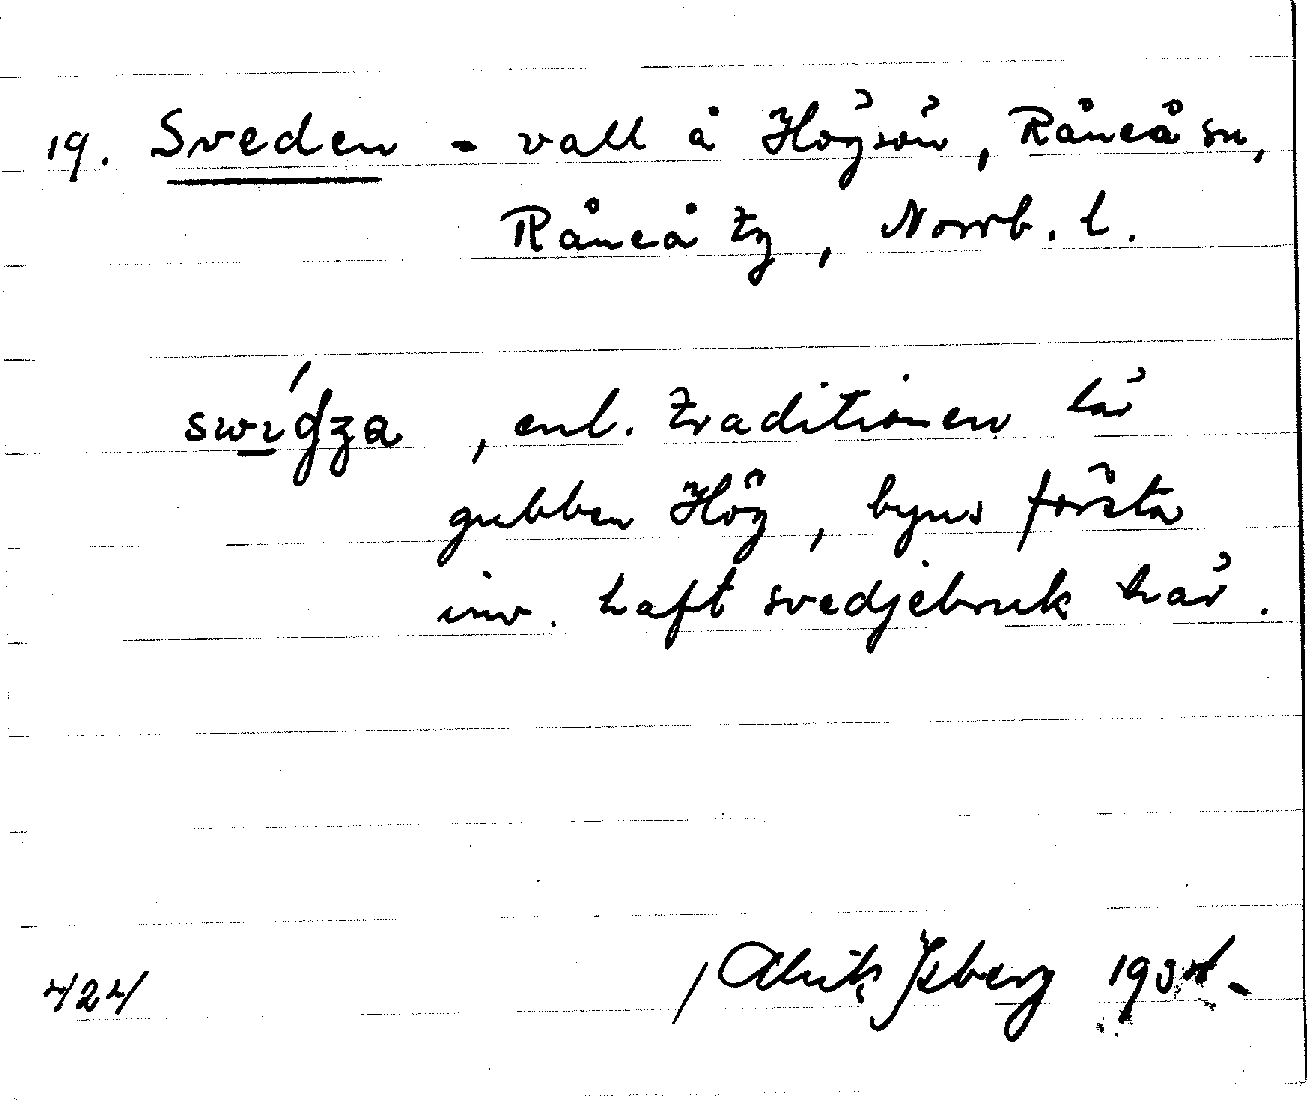 19. Sveden - vall å Högsön, Råneå sn,
Råneå tg, Norrb. l.
, enl. traditionen lär
gubben Hög, byns första
inv. haft svedjebruk här.
424 / Ulrik Isberg